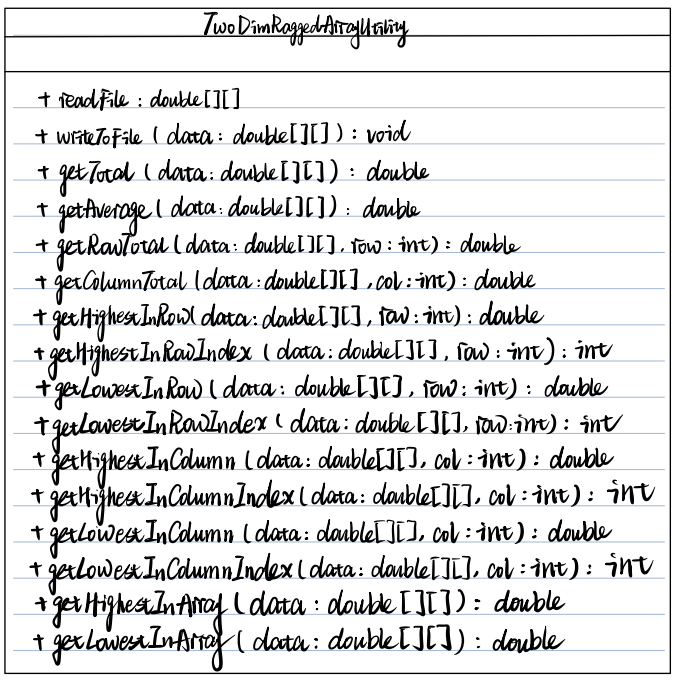 TwoDimRaggedArrayUtility
+ readFile : double[][]
+ writeToFile ( data : double[][] ) : void
+ getTotal ( data : double[][] ) : double
+ getAverage ( data : double[][] ) : double
+ getRowTotal ( data : double[][] , row : int ) : double
+ getColumnTotal ( data : double[][] , col : int ) : double
+ getHighestInRow( data : double[][] , row : int ) : double
+ getHighestInRowIndex ( data : double[][] , row : int ) : int
+ getLowestInRow ( data : double[][] , row : int ) : double
+ getLowestInRowIndex ( data : double[][] , row : int ) : int
+ getHighestInColumn ( data : double[][] , col : int ) : double
+ getHighestInColumnIndex ( data : double[][] , col : int ) : int
+ getLowestInColumn ( data : double[][] , col : int ) : double
+ getLowestInColumnIndex ( data : double[][] , col : int ) : int
+ getHighestInArray ( data : double [][] ) : double
+ getLowestInArray ( data : double [][] ) : double